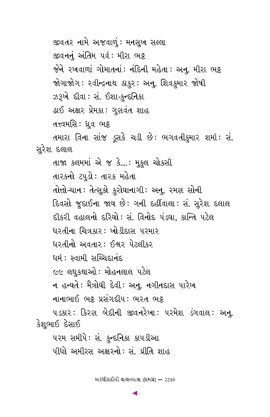 જીવતર નામે અજવાળું : મનસુખ સલ્લા
જીવનનું અંતિમ પર્વ : મીરા ભટ્ટ
જેને રખવાળાં ગોમાતનાં : નંદિની મહેતા : અનુ. મીરા ભટ્ટ
જોગાજોગ : રવીન્દ્રનાથ ઠાકુર : અનુ. શિવકુમાર જોષી
ઝરૂખે દીવા : સં. ઈશા-કુન્દનિકા
ઢાઈ અક્ષર પ્રેમકા : ગુણવંત શાહ
તત્ત્વમસિ : ધ્રુવ ભટ્ટ
તમારા વિના સાંજ ડૂસકે ચડી છે : ભગવતીકુમાર શર્મા : સં.
સુરેશ દલાલ
તાજા કલમમાં એ જ કે... : મુકુલ ચોકસી
તારકનો ટપુડો : તારક મહેતા
તોત્તો-ચાન : તેત્સુકો કુરોયાનાગી : અનુ. રમણ સોની
દિવસો જુદાઈના જાય છે : ગની દહીંવાલા : સં. સુરેશ દલાલ
દીકરી વહાલનો દરિયો : સં. વિનોદ પંડ્યા, કાન્તિ પટેલ
ધરતીના ચિત્રકાર : ખોડીદાસ પરમાર
ધરતીનો અવતાર : ઈશ્વર પેટલીકર
ધર્મ : સ્વામી સચ્ચિદાનંદ
૯૯ લઘુકથાઓ : મોહનલાલ પટેલ
ન હન્યતે : મૈત્રેયી દેવી : અનુ. નગીનદાસ પારેખ
નાનાભાઈ ભટ્ટ પ્રસંગદીપ : ભરત ભટ્ટ
પડકાર : કિરણ બેદીની જીવનરેખા : પરમેશ ડંગવાલ : અનુ.
કેશુભાઈ દેસાઈ
પરમ સમીપે : સં. કુન્દનિકા કાપડીઆ
પીધો અમીરસ અક્ષરનો : સં. પ્રીતિ શાહ
— 2249